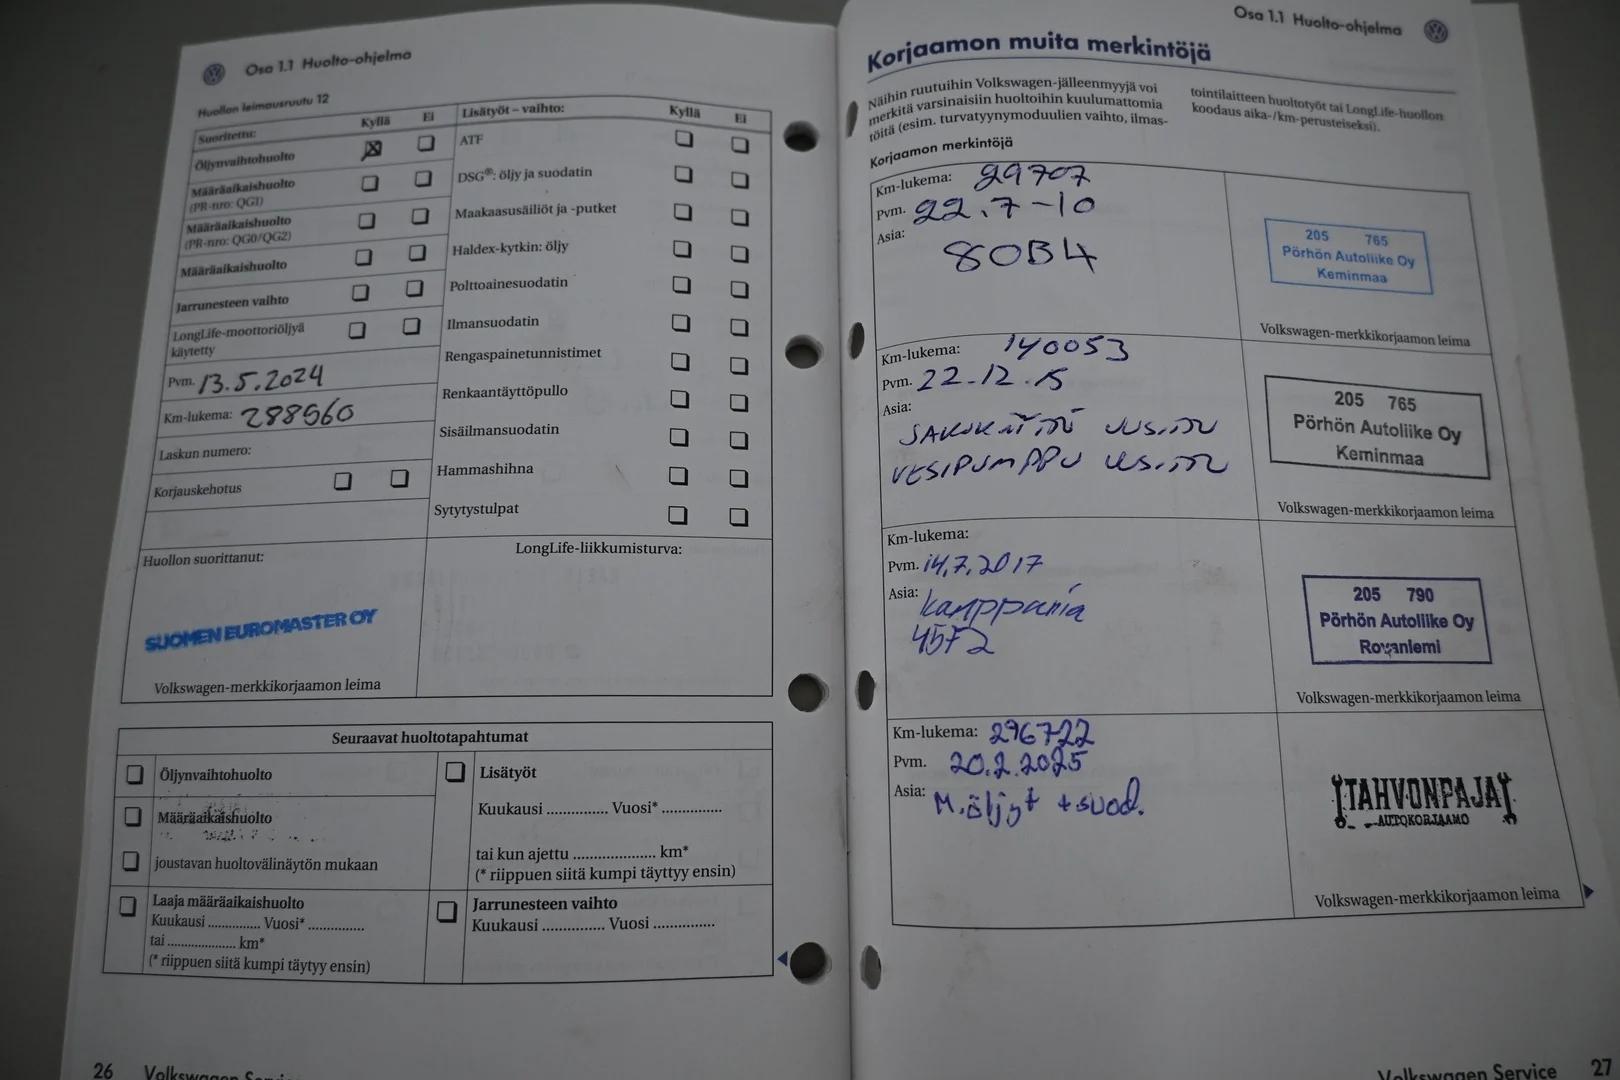 Osa 1.1 Huolto-ohjelma
Huollon leimausruutu 12
Suoritettu: Kyllä Ei
Öljynvaihtohuolto
Määräaikaishuolto
(PR-nro: QG1)
Määräaikaishuolto
(PR-nro: QG0/QG2)
Määräaikaishuolto
Jarrunesteen vaihto
LongLife-moottoriöljyä
käytetty
Pvm. 13.5.2024
Km-lukema: 288560
Laskun numero:
Korjauskehotus
Lisätyöt – vaihto: Kyllä Ei
ATF
DSG®: öljy ja suodatin
Maakaasusäiliöt ja -putket
Haldex-kytkin: öljy
Polttoainesuodatin
Ilmansuodatin
Rengaspainetunnistimet
Renkaantäyttöpullo
Sisäilmansuodatin
Hammashihna
Sytytystulpat
Huollon suorittanut:
SUOMEN EUROMASTER OY
Volkswagen-merkkikorjaamon leima
LongLife-liikkumisturva:
Seuraavat huoltotapahtumat
Öljynvaihtohuolto
Määräaikaishuolto
joustavan huoltovälinäytön mukaan
Laaja määräaikaishuolto
Kuukausi ............... Vuosi* ...............
tai .................... km*
(* riippuen siitä kumpi täytyy ensin)
Lisätyöt
Kuukausi ............... Vuosi* ...............
tai kun ajettu .................... km*
(* riippuen siitä kumpi täyttyy ensin)
Jarrunesteen vaihto
Kuukausi ............... Vuosi ...............
26 Volkswagen Service
Osa 1.1 Huolto-ohjelma
Korjaamon muita merkintöjä
Näihin ruutuihin Volkswagen-jälleenmyyjä voi
merkitä varsinaisiin huoltoihin kuulumattomia
töitä (esim. turvatyynymoduulien vaihto, ilmas-
tointilaitteen huoltotyöt tai LongLife-huollon
koodaus aika-/km-perusteiseksi).
Korjaamon merkintöjä
Km-lukema: 29707
Pvm. 22.7-10
Asia:
80B4
205 765
Pörhön Autoliike Oy
Keminmaa
Volkswagen-merkkikorjaamon leima
Km-lukema: 140053
Pvm. 22-12.15
Asia:
JAKOKETJU UUSITTU
VESIPUMPPU UUSITTU
205 765
Pörhön Autoliike Oy
Keminmaa
Volkswagen-merkkikorjaamon leima
Km-lukema:
Pvm. 14.7.2017
Asia: kamppania
45F2
205 790
Pörhön Autoliike Oy
Rovaniemi
Volkswagen-merkkikorjaamon leima
Km-lukema: 296722
Pvm. 20.2.2025
Asia: M.öljyt + suod.
TAHVONPAJA
AUTOKORJAAMO
Volkswagen-merkkikorjaamon leima
Volkswagen Service 27